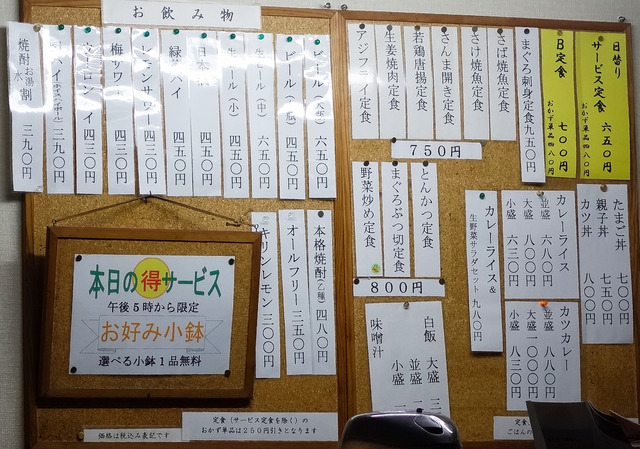 日替り
サービス定食 六五〇円
おかず単品四八〇円
B定食 七〇〇円
おかず単品四八〇円
まぐろ刺身定食九五〇円
さば焼魚定食
さけ焼魚定食
さんま開き定食
若鶏唐揚定食
生姜焼肉定食
アジフライ定食
750円
とんかつ定食
まぐろぶつ切定食
野菜炒め定食
800円
たまご丼 七〇〇円
親子丼 七五〇円
カツ丼 八〇〇円
カレーライス
並盛 六八〇円
大盛 八〇〇円
小盛 六三〇円
カツカレー
並盛 八八〇円
大盛 一〇〇〇円
小盛 八三〇円
カレーライス&
生野菜サラダセット 九八〇円
白飯 大盛
並盛
小盛
味噌汁
お飲み物
ビール 六五〇円
ビール 四五〇円
生ビール(中) 六五〇円
生ビール(小) 四五〇円
日本酒 四五〇円
緑 ハイ 四五〇円
レモンサワー 四三〇円
梅サワー 四三〇円
ウーロンハイ 四三〇円
三九〇円
焼酎 お湯 水 割 三九〇円
本格焼酎(乙種) 四八〇円
オールフリー 三五〇円
キリンレモン 三〇〇円
本日の得サービス
午後5時から限定
お好み小鉢
選べる小鉢1品無料
価格は税込み表記です
定食(サービス定食を除く)の
おかず単品は250円引きとなります
定食
ごはんの